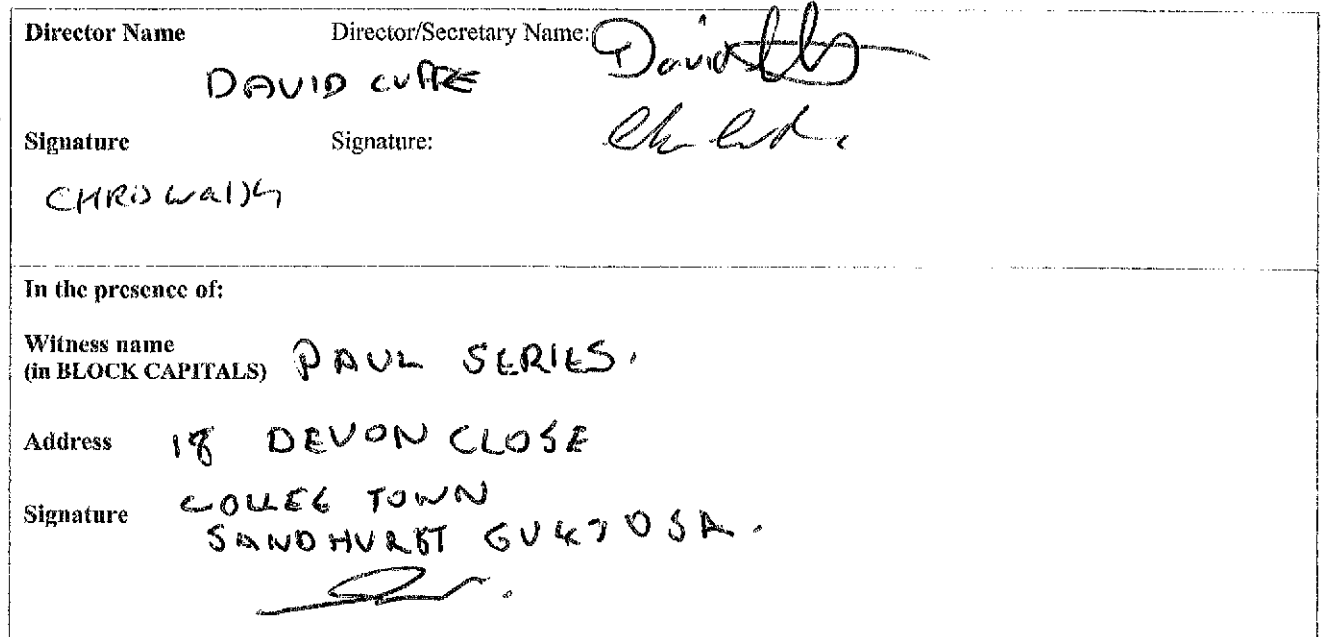 Director Name Director/Secretary Name: David
DAVID CUFFE
Signature Signature:
CHRIS WALSH
In the presence of:
Witness name
(in BLOCK CAPITALS) PAUL SERIES.
Address 18 DEVON CLOSE
Signature COLLEGE TOWN
SANDHURST GU47 0SA.